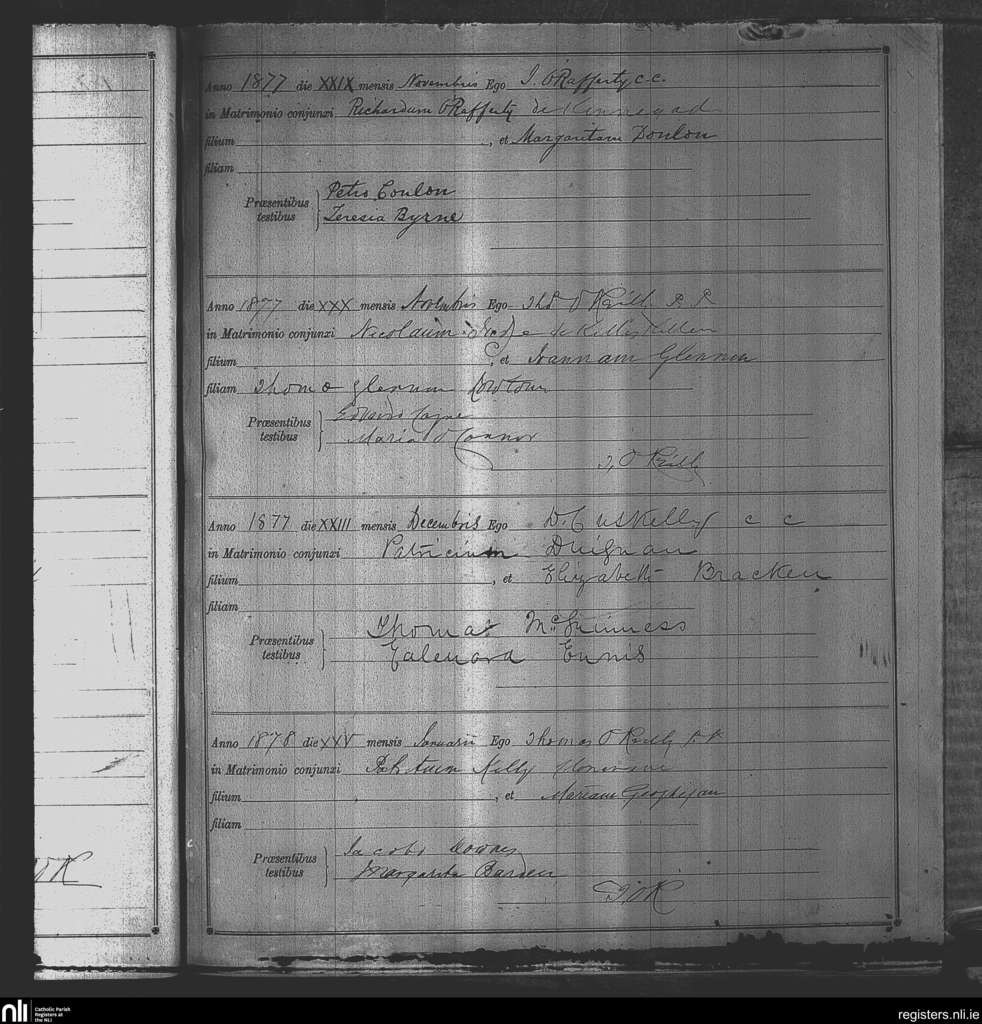 Anno 1877 die XXIX mensis Novembris Ego J. O'Rafferty c.c.
in Matrimonio conjunxi Richardum O'Rafferty de Kinnegad
filium , et Margaritam Donlon
filiam
Præsentibus testibus Petro Conlon
Teresia Byrne
Anno 1877 die XXX mensis Ego O'Reilly P. P.
in Matrimonio conjunxi Nicolaum de
filium , et Joannam Glennon
filiam Thomæ Glennon
Præsentibus testibus
Maria O'Connor
T, O'Reilly
Anno 1877 die XXIII mensis Decembris Ego D. Cuskelly c c
in Matrimonio conjunxi Patricium Duignan
filium , et Elizabeth Bracken
filiam
Præsentibus testibus Thomas McGuinness
Ennis
Anno 1878 die XXV mensis Januarii Ego Thomas O'Reilly P.P.
in Matrimonio conjunxi Kelly
filium , et Mariam Geoghegan
filiam
Præsentibus testibus Jacobo Downes
Margarita Barden
T, O'R
nli
Catholic Parish
Registers at
the NLI
registers.nli.ie